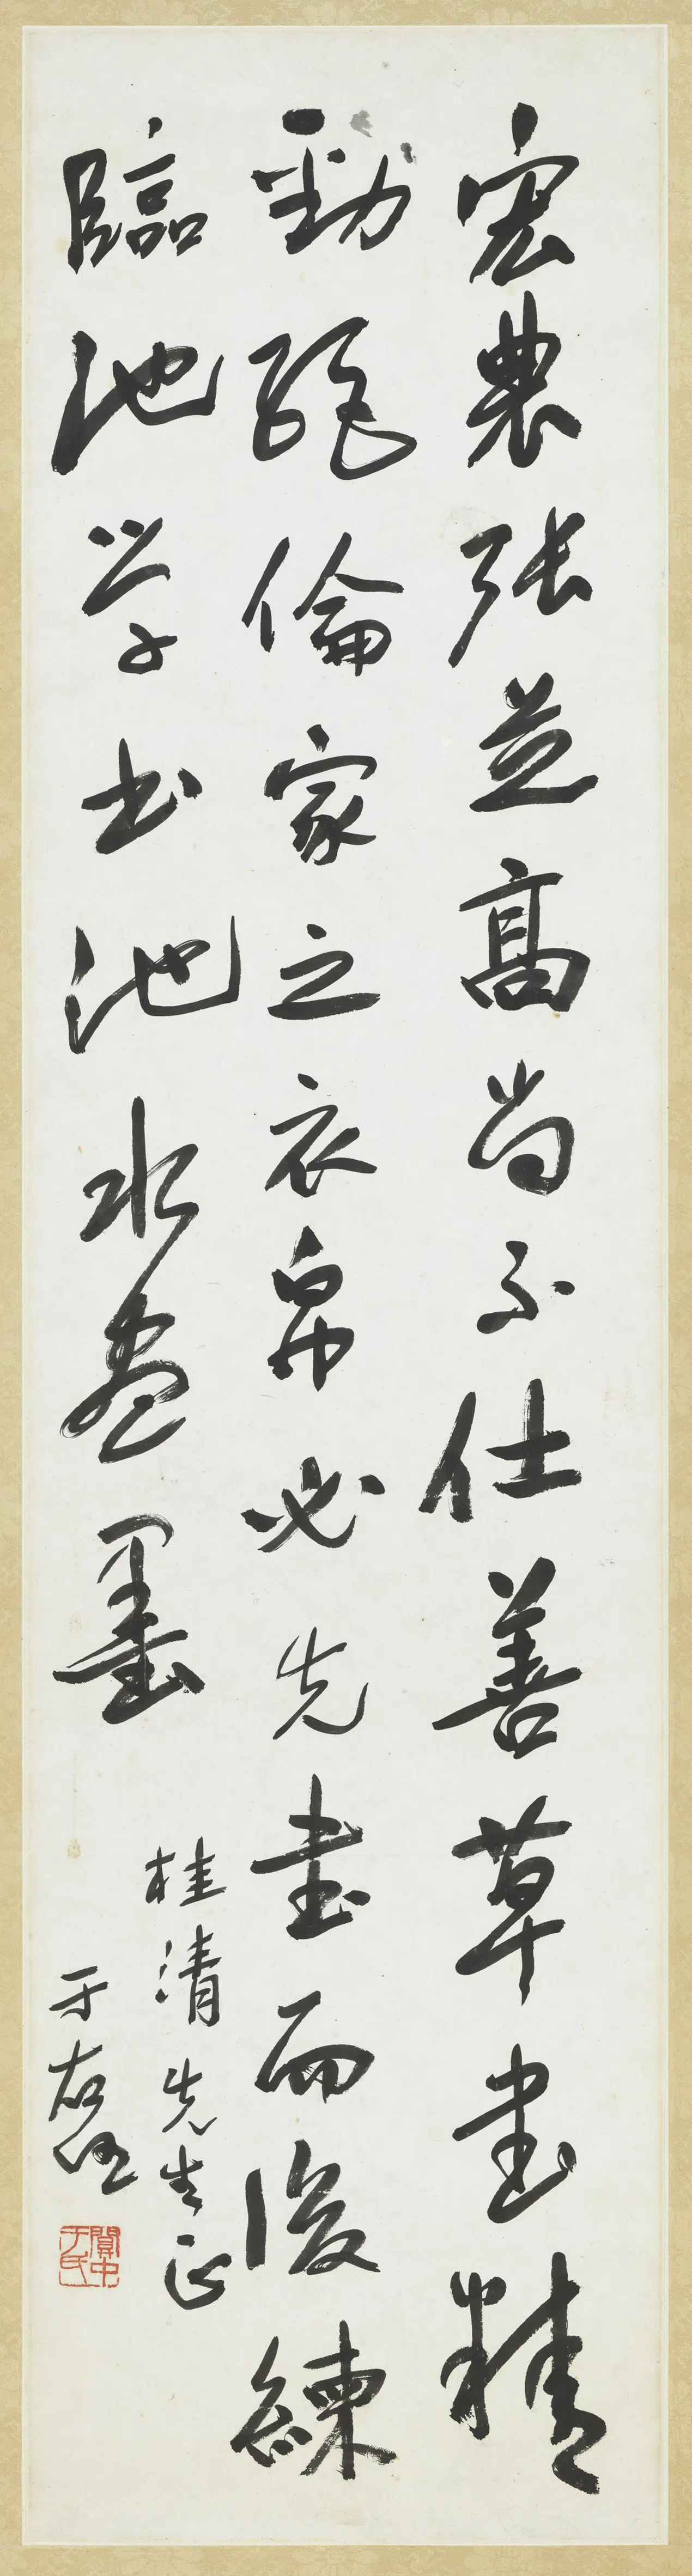 宏農張並高尚不仕善草書精
勁絕倫家之衣帛必先書而後練
臨池学书池水盡墨
桂清先生正
于右任
關中于氏